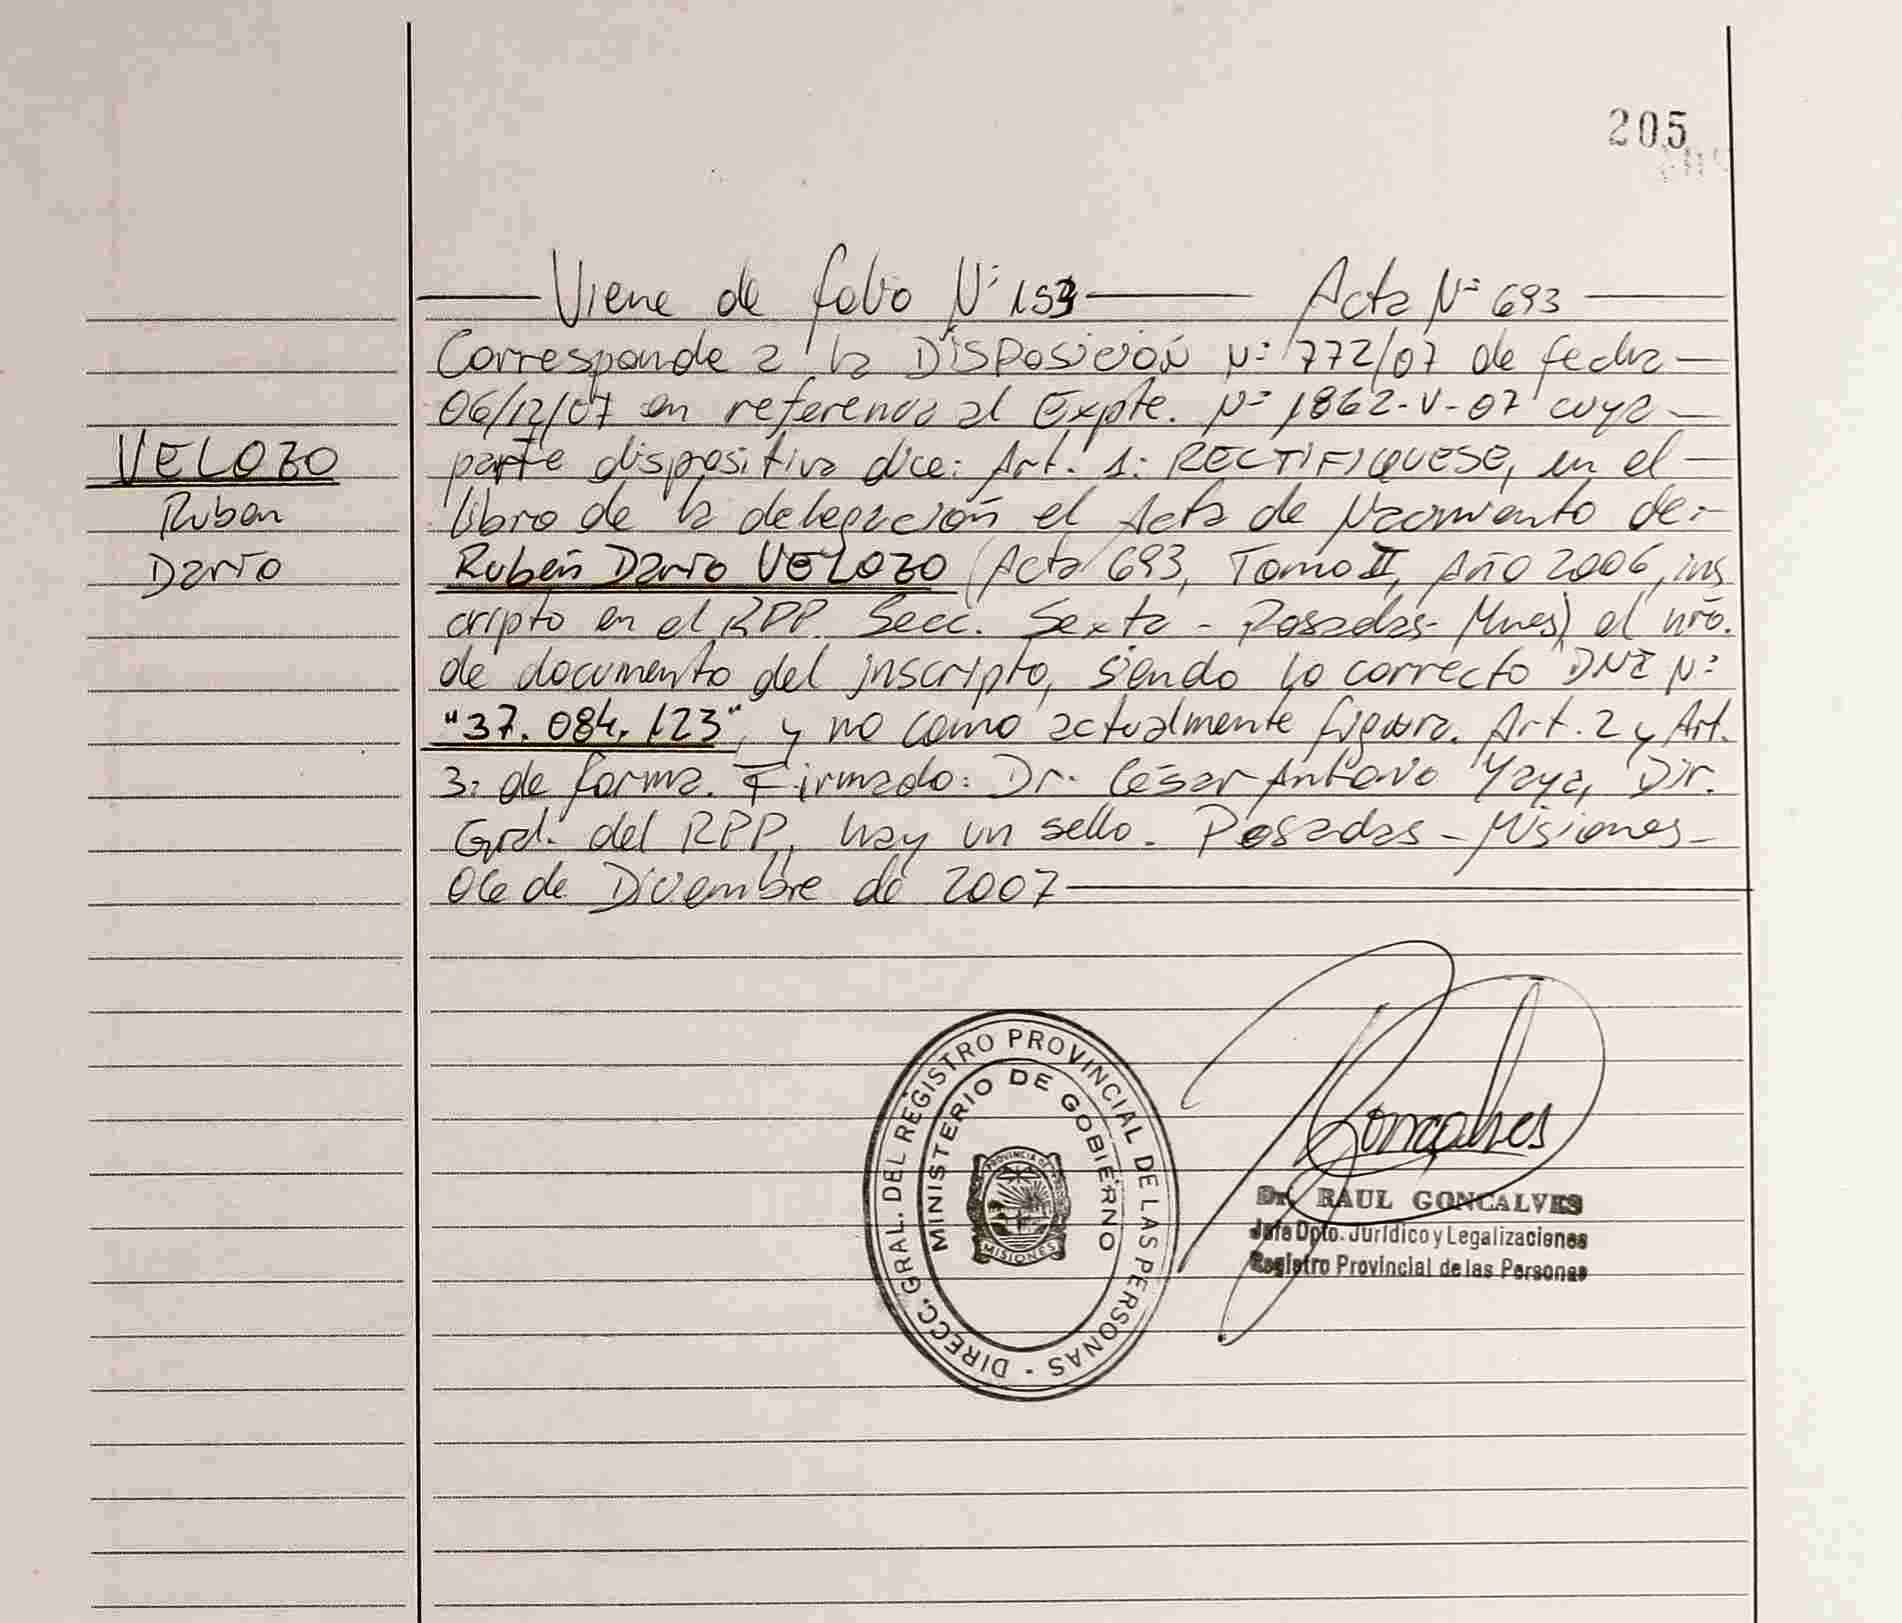 205
Viene de folio Nº 153 Acta Nº 693
Corresponde a la DISPOSICIÓN Nº 772/07 de fecha
06/12/07 en referencia al Expte. Nº 1862-V-07 cuya
VELOZO
parte dispositiva dice: Art. 1: RECTIFIQUESE, en el
Ruben
libro de la delegación el Acta de Nacimiento de:
Dario
Rubén Dario VELOZO (Acta 693, Tomo II, Año 2006, ins
cripto en el RPP. Secc. Sexta - Posadas - Mnes) el nro.
de documento del inscripto, siendo lo correcto DNI Nº
"37.084.123", y no como actualmente figura. Art. 2 y Art.
3: de forma. Firmado: Dr. César Antonio Yaya, Dir.
Gral. del RPP, hay un sello. Posadas - Misiones -
06 de Diciembre de 2007
DIRECC. GRAL. DEL REGISTRO PROVINCIAL DE LAS PERSONAS -
MINISTERIO DE GOBIERNO
PROVINCIA DE
MISIONES
Goncalves
Dr. RAUL GONCALVES
Jefe Dpto. Jurídico y Legalizaciones
Registro Provincial de las Personas